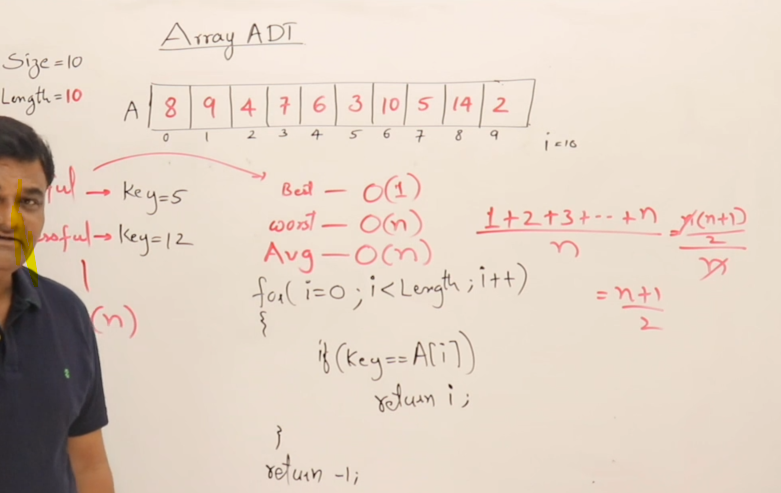 Array ADT
Size=10
Length=10
A 8 9 4 7 6 3 10 5 14 2
0 1 2 3 4 5 6 7 8 9
i=10
→ Key=5
→ Key=12
(n)
Best — O(1)
worst — O(n)
Avg — O(n)
1+2+3+---+n / n = n(n+1)/2 / n
= n+1 / 2
for( i=0 ; i<Length ; i++)
{
if (Key==A[i])
return i ;
}
return -1;